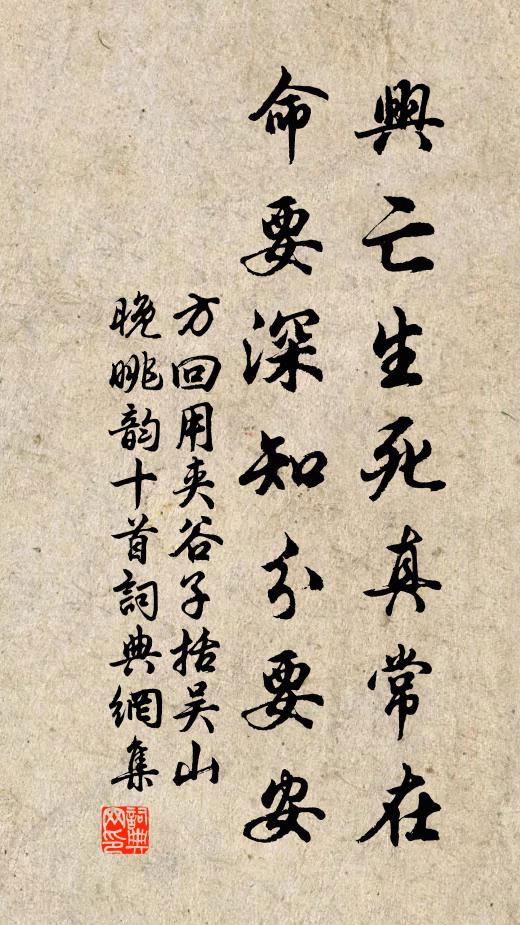 興亡生死真常在
命要深知分要安
方回用夾谷子括吴山
晚眺韵十首詞典網集
詞典
网印